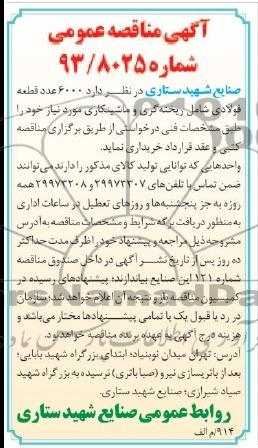 آگهی مناقصه عمومی
شماره ۹۳/۸۰۲۵
صنایع شهید ستاری در نظر دارد ۶۰۰۰ عدد قطعه
فولادی شامل ریخته گری و ماشینکاری مورد نیاز خود را
طبق مشخصات فنی درخواستی از طریق برگزاری مناقصه
کتبی و عقد قرارداد خریداری نماید.
واحدهایی که توانایی تولید کالای مذکور را دارند می‌توانند
ضمن تماس با تلفن‌های ۲۹۹۷۳۳۰۷ و ۲۹۹۷۳۲۰۸ همه
روزه به جز پنجشنبه‌ها و روزهای تعطیل در ساعات اداری
به منظور دریافت برگه شرایط و مشخصات مناقصه به آدرس
مشروحه ذیل مراجعه و پیشنهاد خود را ظرف مدت حداکثر
ده روز پس از تاریخ نشر آگهی در داخل صندوق مناقصه
شماره ۱۲۱ این صنایع بیاندازند؛ پیشنهادهای رسیده در
کمیسیون مناقصه باز و نتیجه آن اعلام خواهد شد؛ سازمان
در رد یا قبول یک یا تمامی پیشنهادها مختار می‌باشد و
هزینه درج آگهی به عهده برنده مناقصه خواهد بود.
آدرس: تهران میدان نوبنیاد؛ ابتدای بزرگراه شهید بابایی؛
بعد از باتریسازی نیرو (صبا باتری) نرسیده به بزرگراه شهید
صیاد شیرازی؛ صنایع شهید ستاری.
روابط عمومی صنایع شهید ستاری
۹۱۴/م الف